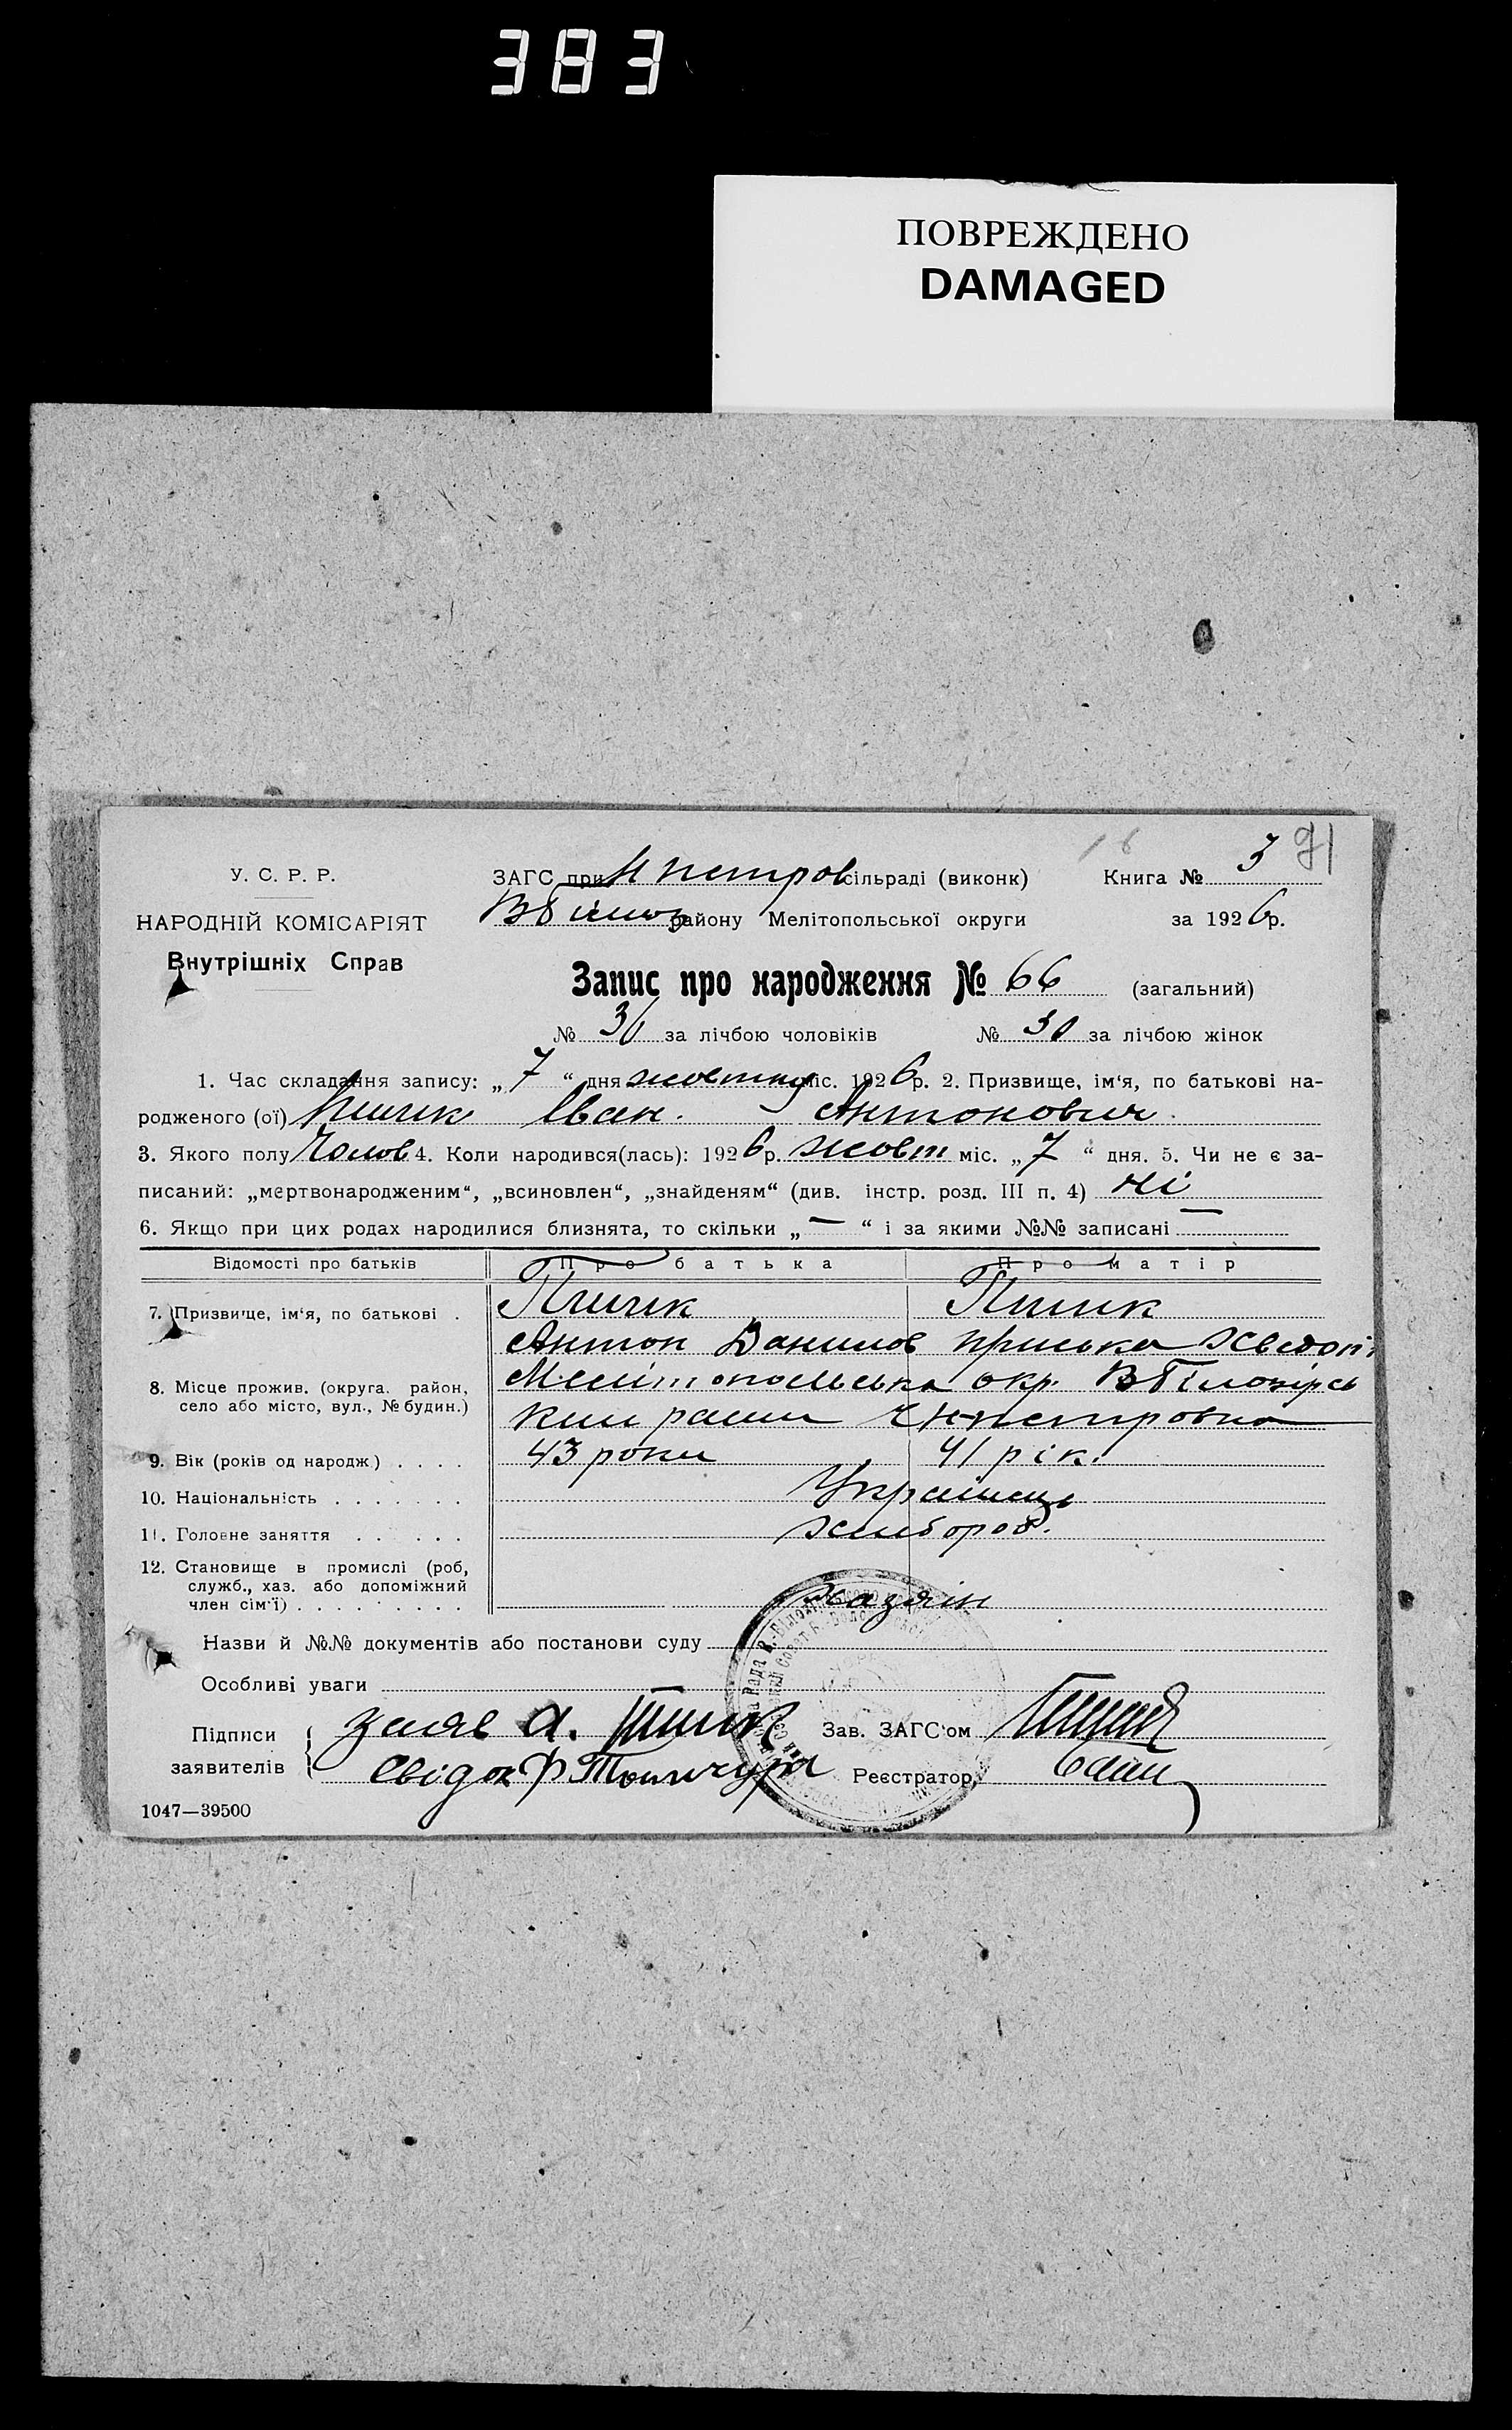 383
ПОВРЕЖДЕНО
DAMAGED
У. С. Р. Р.
НАРОДНІЙ КОМІСАРІЯТ
Внутрішніх Справ
ЗАГС при Н петров сільраді (виконк)
району Мелітопольської округи
Книга № 3 91
за 1926р.
Запис про народження № 66 (загальний)
№ 36 за лічбою чоловіків № 30 за лічбою жінок
1. Час складання запису: „7“ дня жовтня міс. 1926р. 2. Призвище, ім‘я, по батькові на-
родженого (ої) Іван Антонович
3. Якого полу Чолов 4. Коли народився(лась): 1926р. жовт міс. „7“ дня. 5. Чи не є за-
писаний: „мертвонародженим“, „всиновлен“, „знайденям“ (див. інстр. розд. III п. 4) ні
6. Якщо при цих родах народилися близнята, то скільки „—“ і за якими №№ записані —
Відомості про батьків Про батька Про матір
7. Призвище, ім‘я, по батькові .
Антон Данилов приська
8. Місце прожив. (округа, район,
село або місто, вул., № будин.)
Мелітопольська окр. ВБілозірсь
9. Вік (років од народж.) . . . . 43 роки 41 рік.
10. Національність . . . . . . . Українець
11. Головне заняття . . . . . . хлібороб.
12. Становище в промислі (роб,
служб., хаз. або допоміжний
член сім‘ї) . . . . . . . . . хазяїн
Назви й №№ документів або постанови суду
Особливі уваги
Підписи
заявителів
заяв А.
Свідок Ф
Зав. ЗАГС‘ом
Реєстратор
1047—39500